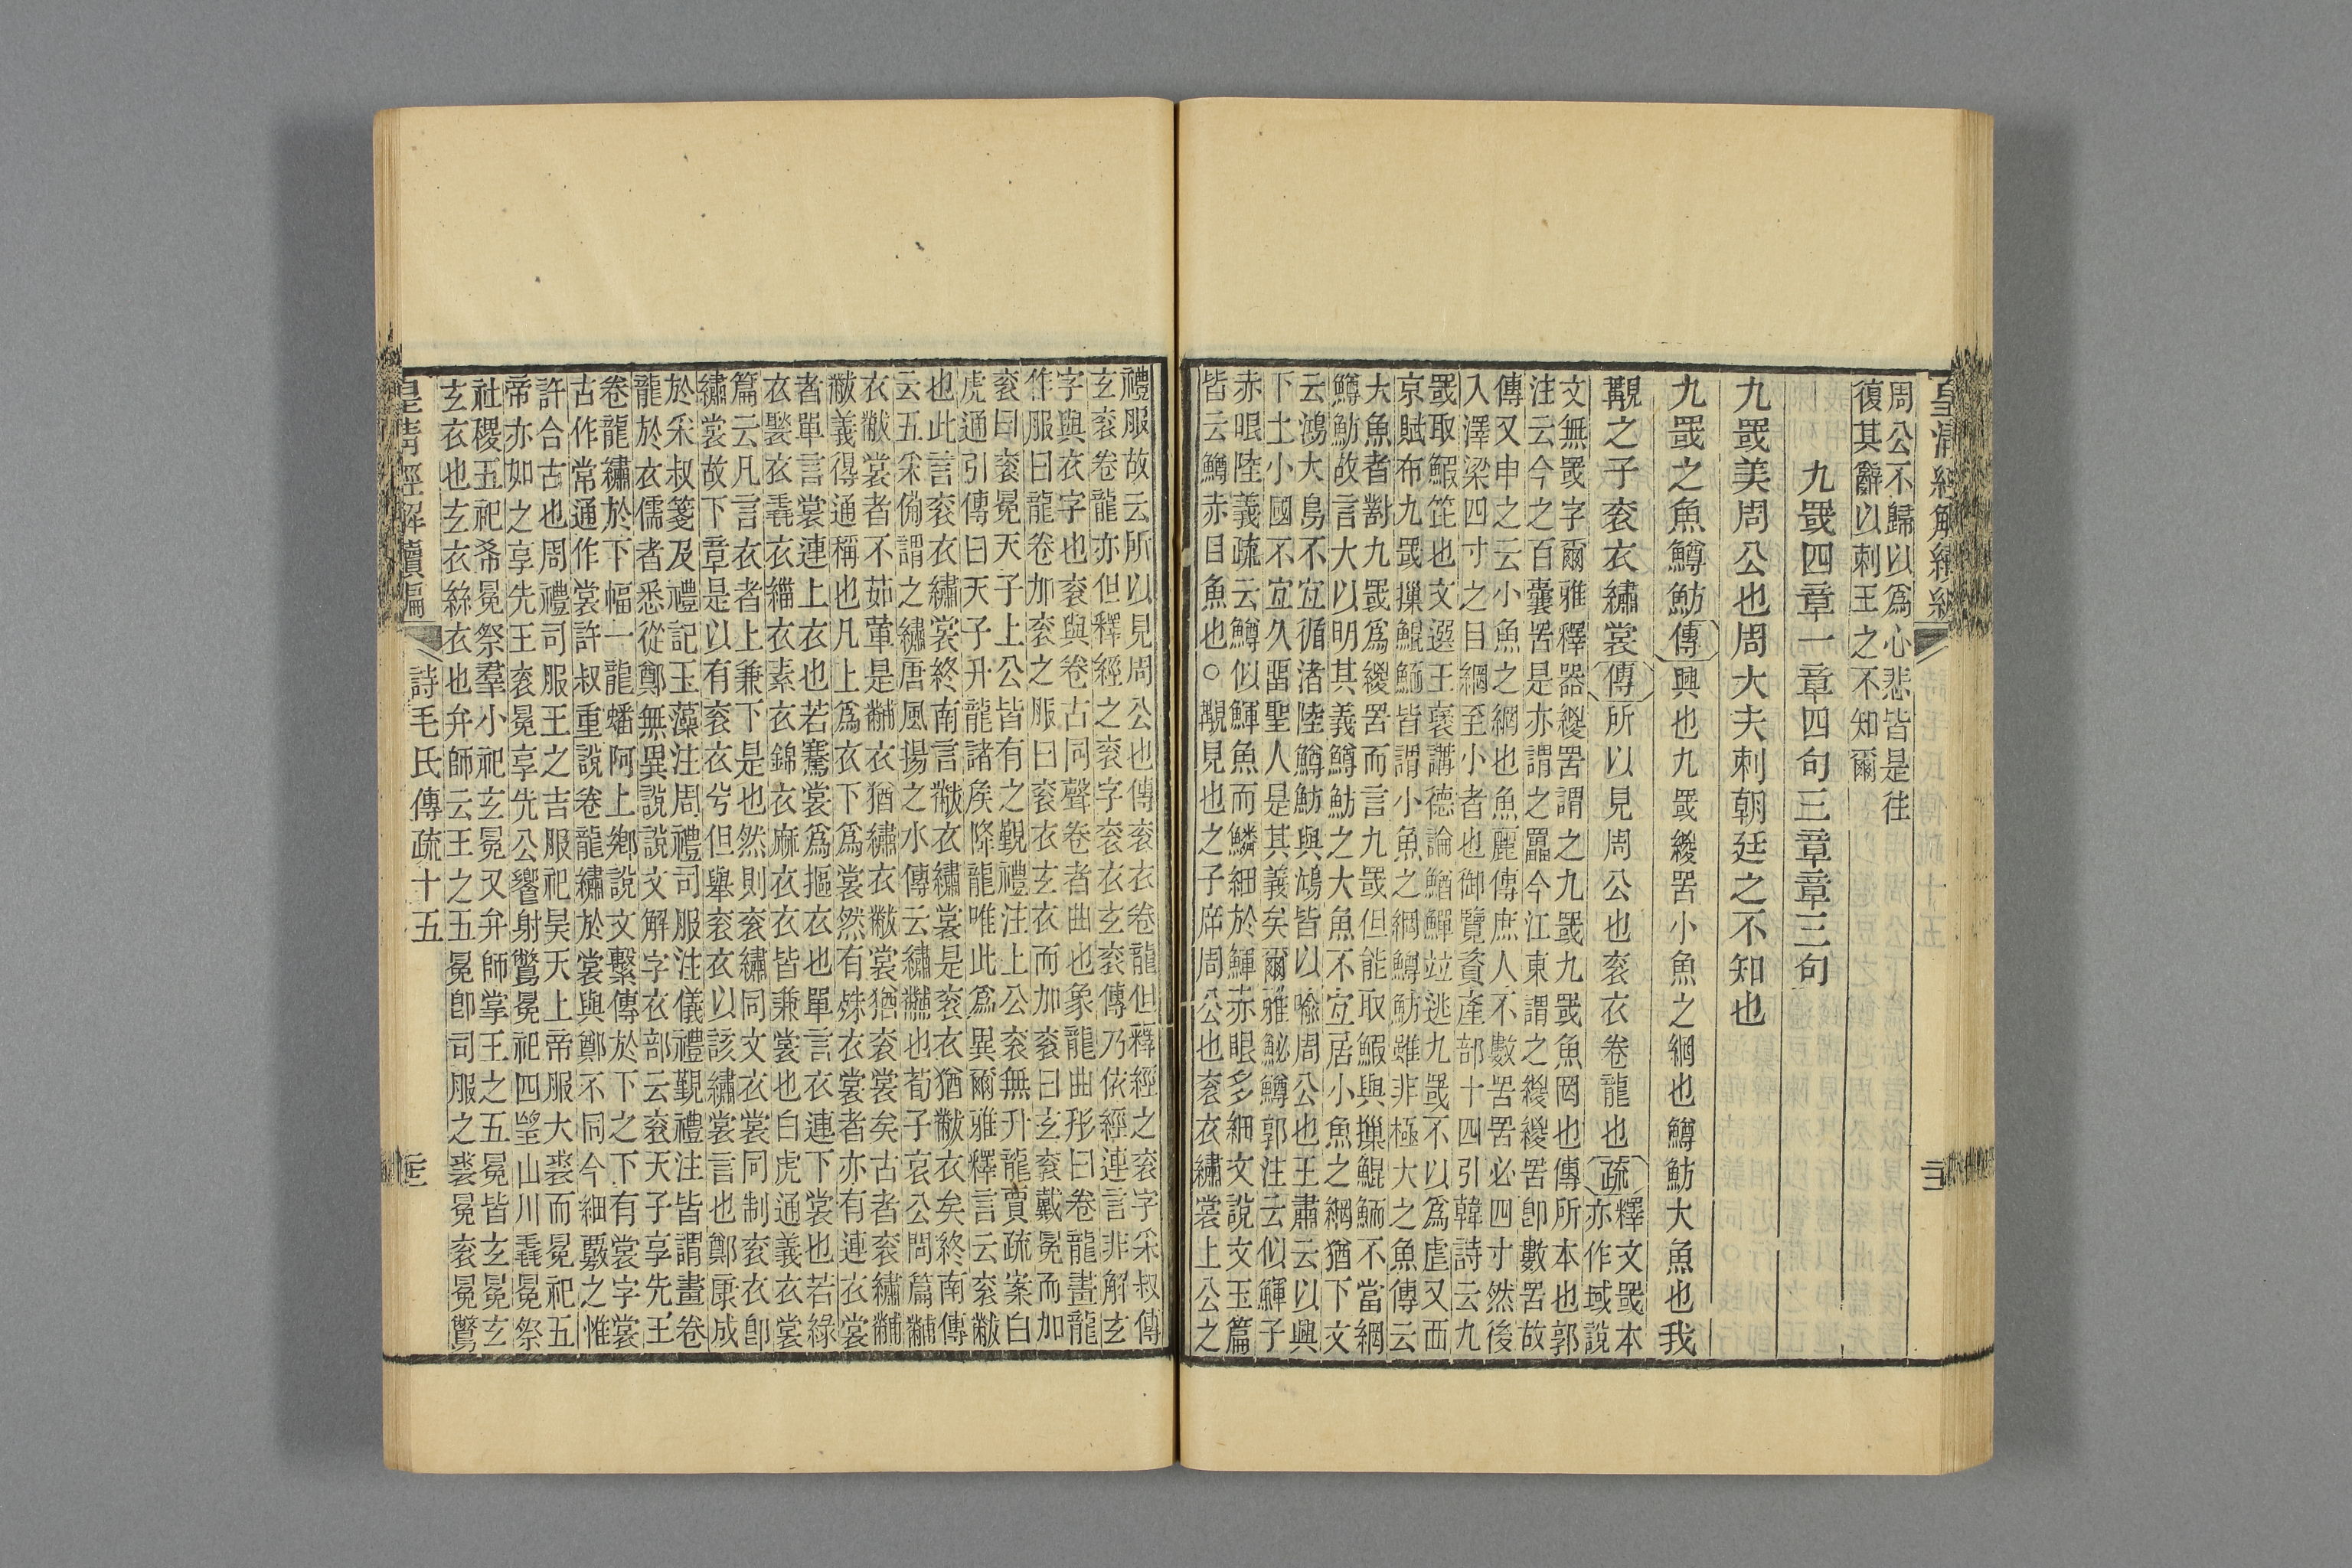 皇淸經解續編
周公不歸以爲心悲皆是往
復其辭以刺王之不知爾
九罭四章一章四句三章章三句
九罭美周公也周大夫刺朝廷之不知也
九罭之魚鱒魴傳興也九罭緵罟小魚之網也鱒魴大魚也我
覯之子衮衣繡裳傳所以見周公也衮衣卷龍也疏釋文罭本
亦作域說
文無罭字爾雅釋器緵罟謂之九罭九罭魚罔也傳所本也郭
注云今之百囊罟是亦謂之䍡今江東謂之緵緵罟卽數罟故
傳又申之云小魚之網也魚麗傳庶人不數罟罟必四寸然後
入澤梁四寸之目網至小者也御覽資產部十四引韓詩云九
罭取鰕笓也文選王襃講德論鰌鱓竝逃九罭不以爲虛又西
京賦布九罭摷鯤鮞皆謂小魚之網鱒魴雖非極大之魚傳云
大魚者對九罭爲緵罟而言九罭但能取鰕與摷鯤鮞不當網
鱒魴故言大以明其義鱒魴之大魚不宜居小魚之網猶下文
云鴻大鳥不宜循渚陸鱒魴與鴻皆以喻周公也王肅云以興
下土小國不宜久畱聖人是其義矣爾雅鮅鱒郭注云似鯶子
赤眼陸義疏云鱒似鯶魚而鱗細於鯶赤眼多細文說文玉篇
皆云鱒赤目魚也○覯見也之子席周公也衮衣繡裳上公之
禮服故云所以見周公也傳衮衣卷龍但釋經之衮字采叔傳
玄衮卷龍亦但釋經之衮字衮衣玄衮傳乃依經連言非解玄
字與衣字也衮與卷古同聲卷者曲也象龍曲形曰卷龍畫龍
作服曰龍卷加衮之服曰衮衣玄衣而加衮曰玄衮戴冕而加
衮曰衮冕天子上公皆有之覲禮注上公衮無升龍賈疏案白
虎通引傳曰天子升龍諸矦降龍唯此爲異爾雅釋言云衮黻
也此言衮衣繡裳終南言黻衣繡裳是衮衣猶黻衣矣終南傳
云五采備謂之繡唐風揚之水傳云繡黼也荀子哀公問篇黼
衣黻裳者不茹葷是黼衣猶繡衣黻裳猶衮裳矣古者衮繡黼
黻義得通稱也凡上爲衣下爲裳然有殊衣裳者亦有連衣裳
者單言裳連上衣也若騫裳爲摳衣也單言衣連下裳也若綠
衣褧衣毳衣緇衣素衣錦衣麻衣衣皆兼裳也白虎通義衣裳
篇云凡言衣者上兼下是也然則衮繡同文衣裳同制衮衣卽
繡裳故下章是以有衮衣兮但舉衮衣以該繡裳言也鄭康成
於采叔箋及禮記玉藻注周禮司服注儀禮覲禮注皆謂畫卷
龍於衣儒者悉從鄭無異說說文解字衣部云衮天子享先王
卷龍繡於下幅一龍蟠阿上鄉說文繫傳於下之下有裳字裳
古作常通作裳許叔重說卷龍繡於裳與鄭不同今細覈之惟
許合古也周禮司服王之吉服祀昊天上帝服大裘而冕祀五
帝亦如之享先王衮冕享先公饗射鷩冕祀四望山川毳冕祭
社稷五祀希冕祭羣小祀玄冕又弁師掌王之五冕皆玄冕玄
玄衣也玄衣絲衣也弁師云王之五冕卽司服之裘冕衮冕鷩
皇淸經解續編　詩毛氏傳疏十五